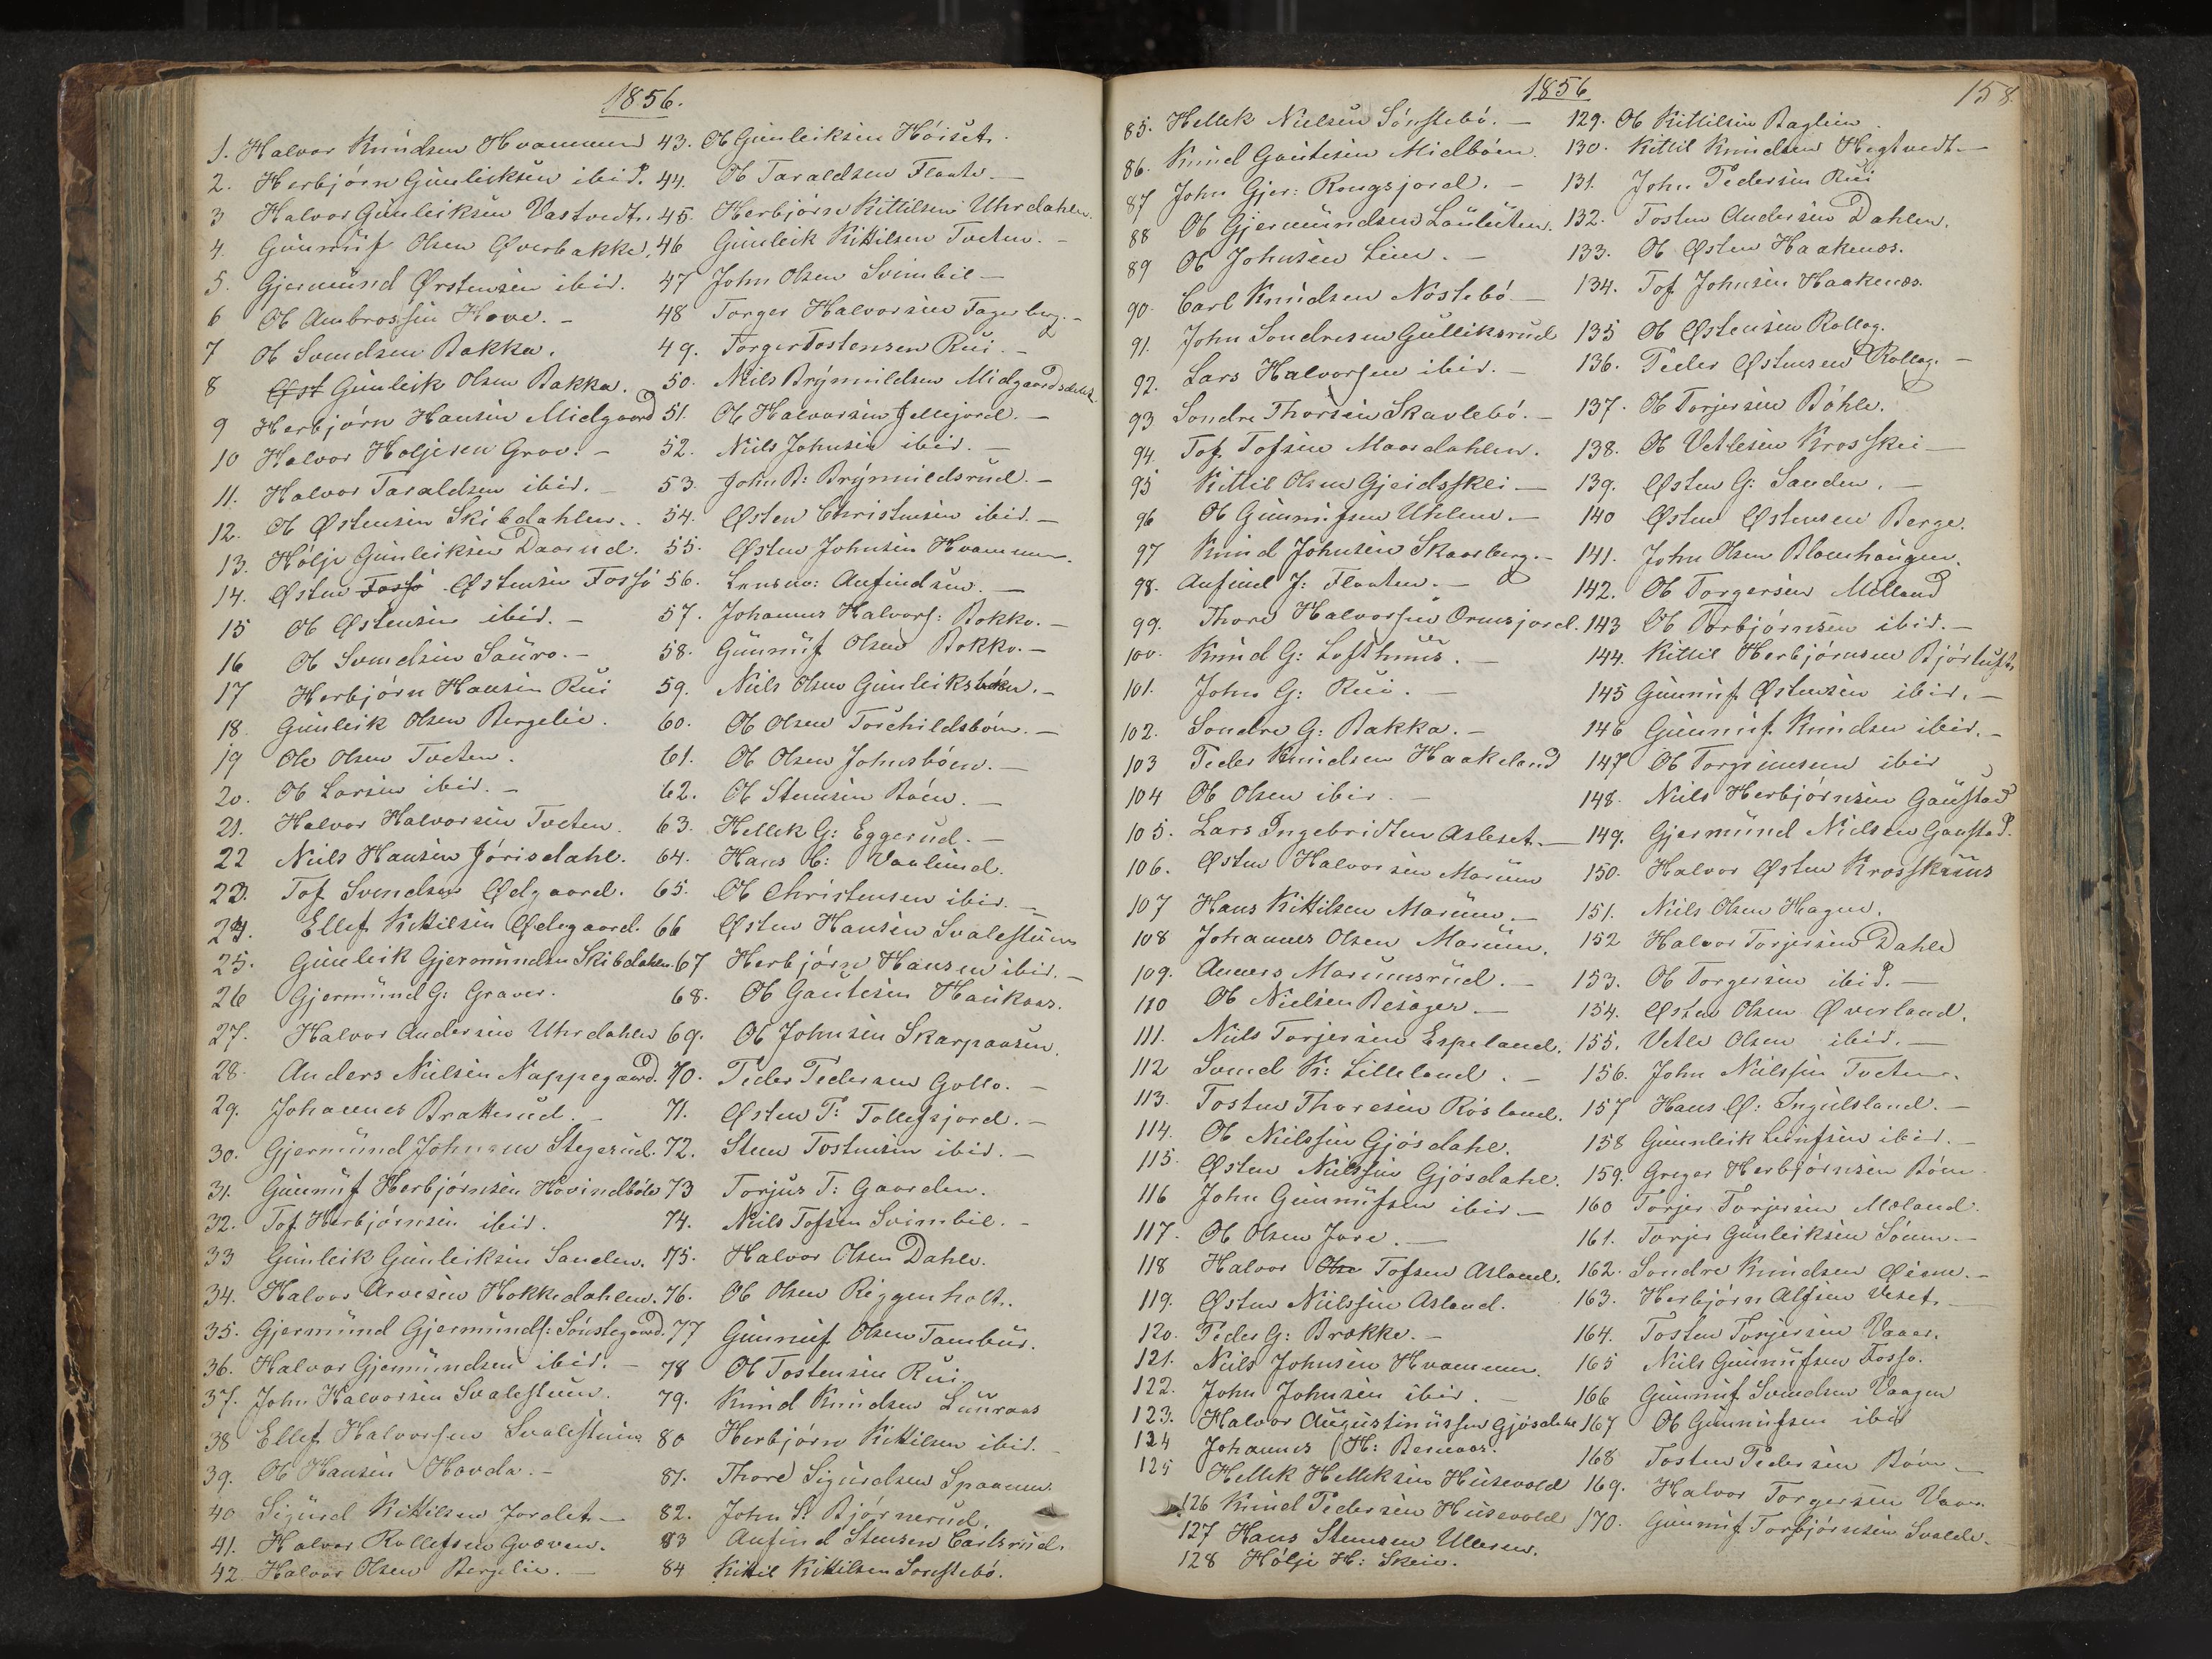 1856.
1. Halvor Knudsen Hvammen
2. Herbjörn Gunleiksen ibid.
3 Halvor Gunleiksen Vastvedt.
4. Gunnuf Olsen Øverbakke.
5. Gjermund Østensen ibid.
6 Ol Ambrossen Hove. -
7 Ol Svendsen Bakka.
8 Øst Gunleik Olsen Bakka.
9 Herbjörn Hansen Midgaard
10 Halvor Holjesen Grov. -
11. Halvor Taraldsen ibid. -
12. Ol Østensen Skibdahlen.
13. Hölje Gunleiksen Daarud.
14. Østen Fossö Østensen Fossö
15 Ol Østensen ibid. -
16 Ol Svendsen Sauro. -
17 Herbjörn Hansen Rui
18. Gunleik Olsen Bergelie.
19 Ole Olsen Tveten.
20. Ol Larsen ibid. -
21. Halvor Halvorsen Tveten.
22 Niels Hansen Jörisdahl.
23. Tof Svendsen Ødgaard.
24. Ellef Kittilsen Ødegaard.
25. Gunleik Gjermundsen Skibdahlen.
26 Gjermund G: Graver.
27. Halvor Andersen Uhrdahlen
28. Anders Nielsen Nappegaard.
29. Johannes Bratterud. -
30. Gjermund Johnsen Stegerud.
31. Gunnuf Herbjörnsen Hovindböle
32. Tof Herbjörnsen ibid.
33 Gunleik Gunleiksen Sanden.
34. Halvor Arvesen Hokkedahlen.
35. Gjermund Gjermunds: Sönstegaard.
36. Halvor Gjermundsen ibid. -
37. John Halvorsen Svalestuen.
38 Ellef Halvorsen Svalestuen
39. Ol Hansen Hovda. -
40 Sigurd Kittilsen Jordet. -
41. Halvor Rollefsen Gvæven.
42. Halvor Olsen Bergelie. -
43. Ol Gunleiksen Höiset.
44. Ol Taraldsen Flaate. -
45. Herbjörn Kittilsen Uhrdahlen.
46 Gunleik Kittilsen Tveten. -
47 John Olsen Svimbil -
48 Torger Halvorsen Fagerberg. -
49. Torger Tostensen Rui. -
50. Niels Brynnildsen Midgaards
51. Ol Halvorsen Jellejord. -
52. Niels Johnsen ibid. -
53. John B: Brynnildsrud. -
54. Østen Christensen ibid. -
55. Østen Johnsen Hvammen.
56. Lensm: Anfindsen. -
57. Johannes Halvors: Bokko. -
58. Gunnuf Olsen Bokko. -
59. Niels Olsen Gunleiksböen. -
60. Ol Olsen Torchildsböen. -
61. Ol Olsen Johnsböen. -
62. Ol Stensen Böen. -
63. Hellek G: Eggerud. -
64. Hans C: Vaalund.
65. Ol Christensen ibid. -
66 Østen Hansen Svalestuen
67 Herbjörn Hansen ibid. -
68. Ol Gautesen Haukaas.
69. Ol Johnsen Skarpaasen.
70. Peder Pedersen Gollo. -
71. Østen T: Tollefsjord. -
72. Sten Tostensen ibid. -
73 Torjus T: Gaarden.
74. Niels Tofsen Svimbil. -
75. Halvor Olsen Dahle.
76. Ol Olsen Riggenholt.
77 Gunnuf Olsen Tambur.
78 Ol Tostensen Rui
79. Knud Knudsen Luuraas
80 Herbjörn Kittilsen ibid. -
81. Thore Sigurdsen Spaanem.
82. John S. Björnerud.
83 Anfind Stensen Carlsrud.
84 Kittil Kittilsen Sönstebö.
1856
158.
85. Hellek Nielsen Sönstebö. -
86. Knud Gautesen Midböen.
87 John Gjer: Rongsjord. -
88 Ol Gjermundsen Lauluten.
89 Ol Johnsen Lien. -
90. Carl Knudsen Nöstebö -
91. John Sondresen Gulliksrud
92. Lars Halvorsen ibid. -
93 Sondre Thorsen Skavlebö. -
94. Tof Tofsen Maardahlen.
95 Kittil Olsen Gjeidsskei -
96 Ol Gunnufsen Uhlen. -
97 Knud Johnsen Skaarberg. -
98. Anfind J: Flaaten. -
99. Thore Halvorsen Ormsjord.
100. Knud G: Lofthuus. -
101. John G: Rui. -
102. Sondre G: Bakka. -
103 Peder Knudsen Haakeland
104 Ol Olsen ibid. -
105. Lars Ingebridtsen Asleset. -
106. Østen Halvorsen Marum
107 Hans Kittilsen Marum. -
108 Johannes Olsen Marum.
109. Anners Marumsrud. -
110 Ol Nielsen Besager -
111. Niels Torjersen Espeland.
112 Svend K: Lilleland. -
113. Tosten Thoresen Rösland.
114. Ol Nielssen Gjösdahl.
115. Østen Nielssen Gjösdahl.
116 John Gunnufsen ibid -
117. Ol Olsen Jore. -
118 Halvor Olse Tofsen Asland.
119. Østen Nielssen Asland.
120. Peder G: Brække. -
121. Niels Johnsen Hvammen.
122. John Johnsen ibid. -
123. Halvor Augustinussen Gjösdahl
124 Johannes H: Bernaas.
125 Hellek Helleksen Husevold
126 Knud Pedersen Husevold
127 Hans Stensen Ulleren.
128 Hölje H: Skeie.
129. Ol Kittilsen Baglien
130. Kittil Knudsen Hegtvedt -
131. John Pedersen Rui
132. Tosten Andersen Dahlen.
133. Ol Østen Haakenæs.
134. Tof Johnsen Haakenæs.
135 Ol Østensen Rollag.
136. Peder Østensen Rollag. -
137. Ol Torjersen Böhle.
138. Ol Vetlesen Krosskei -
139. Østen G: Sanden. -
140 Østen Østensen Berge.
141. John Olsen Blomhaugen.
142. Ol Torgersen Milland
143 Ol Torbjörnsen ibid. -
144. Kittil Herbjörnsen Björtuft.
145 Gunnuf Østensen ibid. -
146 Gunnuf Knudsen ibid. -
147 Ol Torgrimsen ibid
148. Niels Herbjörnsen Gaustad
149. Gjermund Nielsen Gaustad.
150. Halvor Østen Krosskuus
151. Niels Olsen Hagen.
152 Halvor Torjersen Dahle
153. Ol Torgersen ibid. -
154. Østen Olsen Øverland.
155. Vetle Olsen ibid. -
156. John Nielssen Tveten.
157 Hans Ø: Ingulsland. -
158 Gunnleik Leufsen ibid. -
159. Greger Herbjörnsen Böen
160 Torjer Torjersen Mæland.
161. Torjer Gunleiksen Söum. -
162. Sondre Knudsen Øisne. -
163. Herbjörn Alfsen Veset. -
164. Tosten Torjersen Vaaer.
165 Niels Gunnufsen Fosso.
166 Gunnuf Svendsen Vaagen
167 Ol Gunnufsen ibid
168 Tosten Pedersen Böen -
169. Halvor Torgersen Vaaer.
170. Gunnuf Torbjörnsen Svalde. -